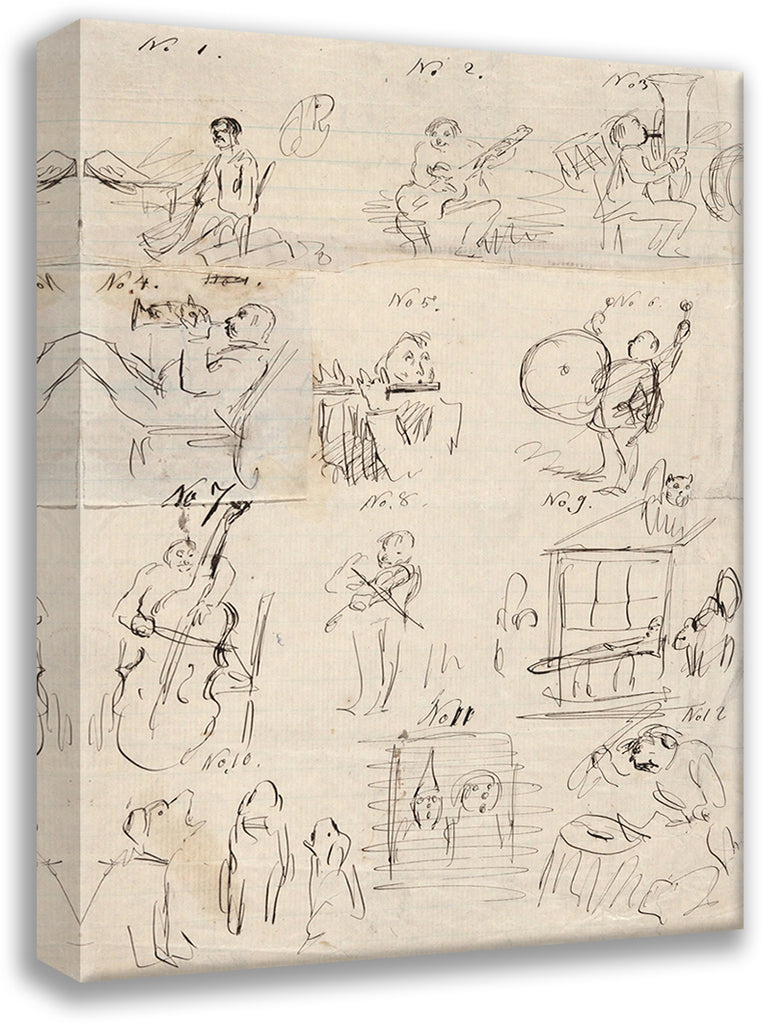 No. 1.
No. 2.
No 3
No. 4.
No 4.
No 5.
No 6.
No 7
No. 8.
No. 9.
No. 10.
No 11
No 12